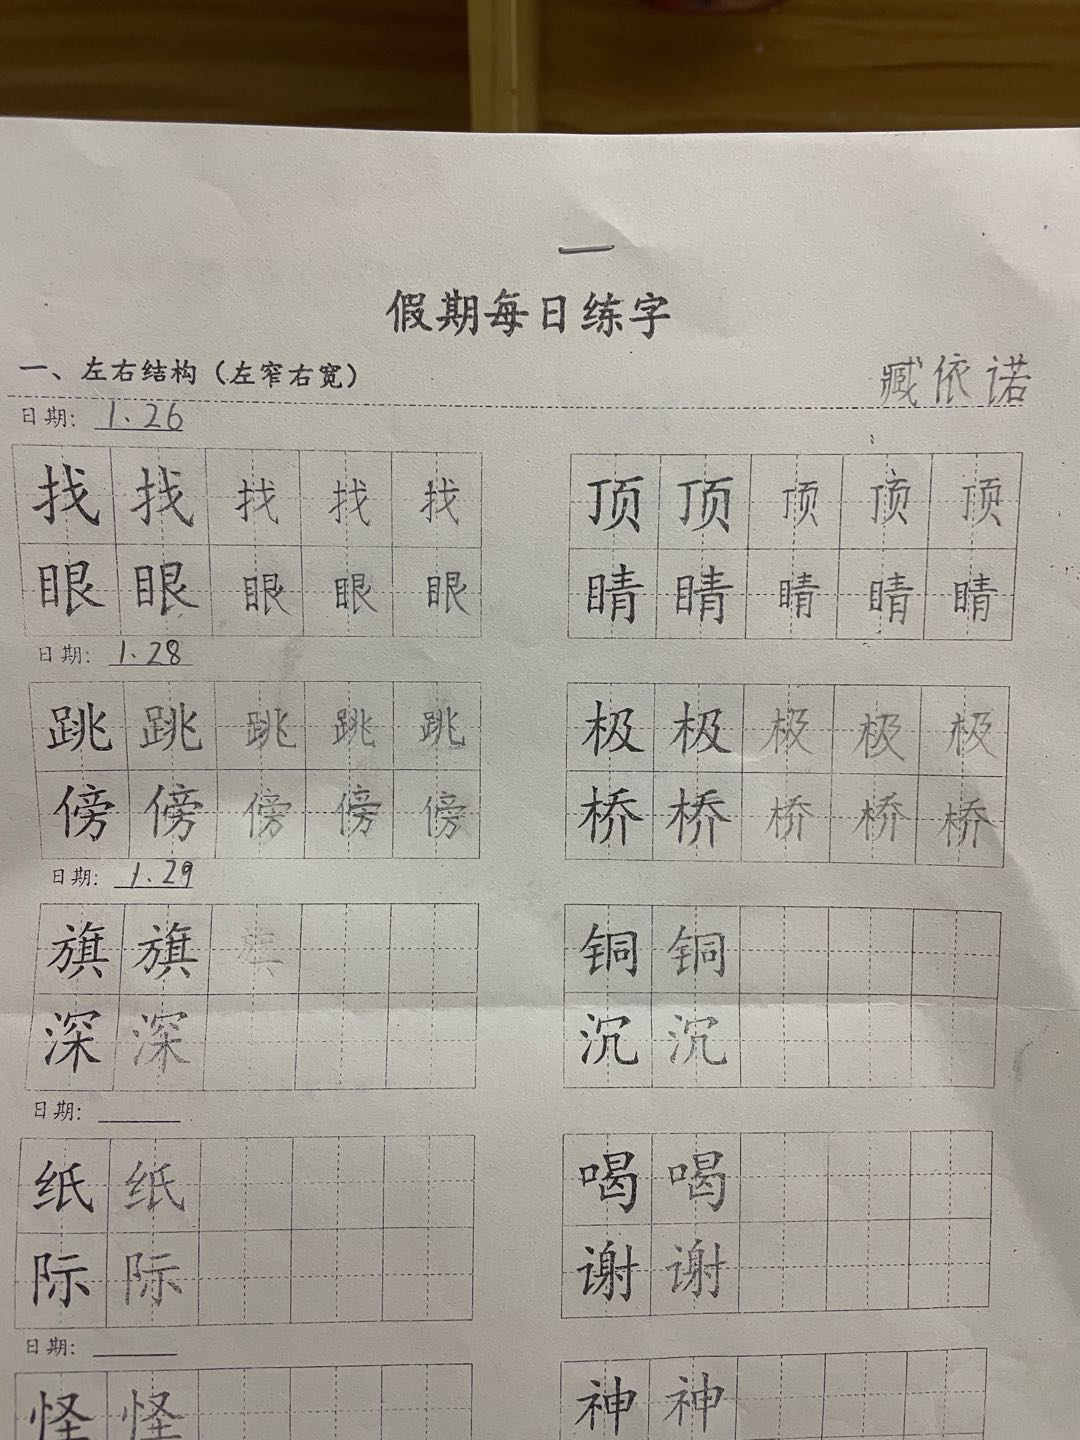 假期每日练字
一、左右结构（左窄右宽）
臧依诺
日期: 1.26
找 找 找 找 找 顶 顶 顶 顶 顶
眼 眼 眼 眼 眼 睛 睛 睛 睛 睛
日期: 1.28
跳 跳 跳 跳 跳 极 极 极 极 极
傍 傍 傍 傍 傍 桥 桥 桥 桥 桥
日期: 1.29
旗 旗 旗 铜 铜
深 深 沉 沉
日期:
纸 纸 喝 喝
际 际 谢 谢
日期:
怪 怪 神 神